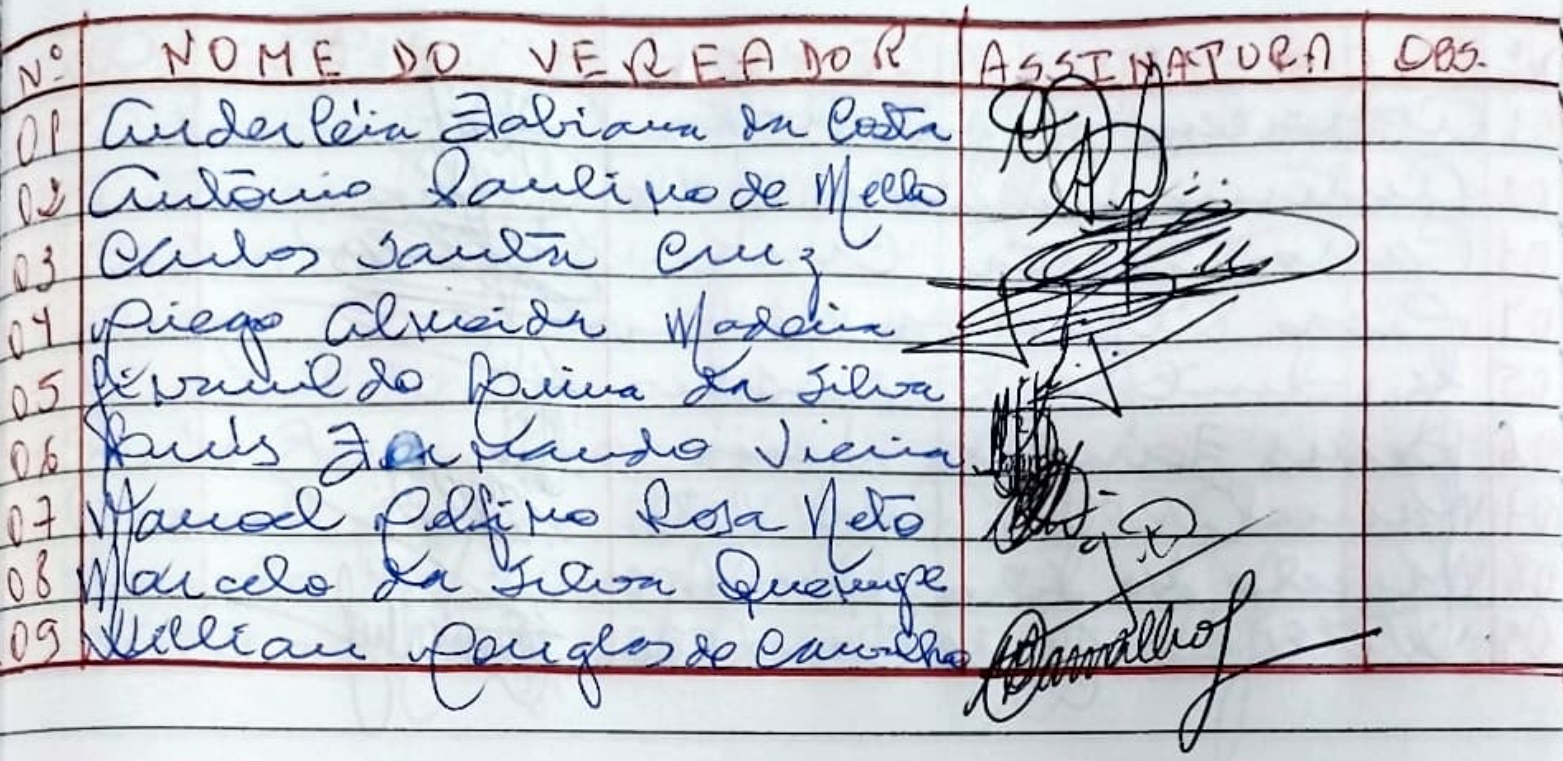 Nº NOME DO VEREADOR ASSINATURA OBS.
01 Anderléia Fabiana da Costa
02 Antônio Paulino de Mello
03 Carlos Santa Cruz
04 Diego Almeida Madeira
05 Genvanildo Paiva da Silva
06 Luís Fernando Vieira
07 Manoel Delfino Rosa Neto
08 Marcelo da Silva Quexupe
09 Willian Douglas de Carvalho Carvalho